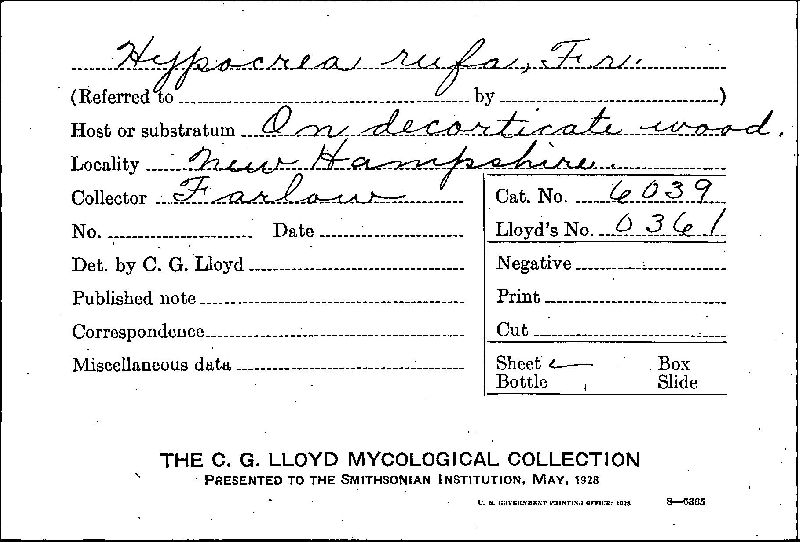 Hypocrea rufa, Fr.
(Referred to by )
Host or substratum On decorticate wood.
Locality New Hampshire.
Collector Farlow
No. Date
Det. by C. G. Lloyd
Published note
Correspondence
Miscellaneous data
Cat. No. 6039
Lloyd's No. 0361
Negative
Print
Cut
Sheet Box
Bottle Slide
THE C. G. LLOYD MYCOLOGICAL COLLECTION
PRESENTED TO THE SMITHSONIAN INSTITUTION, MAY, 1928
U. S. GOVERNMENT PRINTING OFFICE: 1928 8—6365